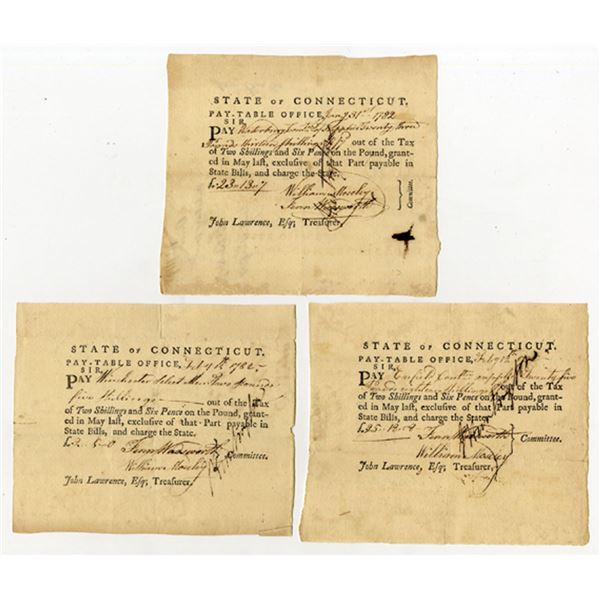 STATE OF CONNECTICUT.
PAY-TABLE OFFICE, Jany 31st 1782
SIR,
PAY Twenty three
Pounds thirteen shillings out of the Tax
of Two Shillings and Six Pence on the Pound, grant-
ed in May last, exclusive of that Part payable in
State Bills, and charge the State.
£23-13-7 William Moseley
Fenn Wadsworth
Committee.
John Lawrence, Esq; Treasurer.
STATE OF CONNECTICUT.
PAY-TABLE OFFICE, 1782
SIR,
PAY Winchester Select Men Pounds
five Shillings out of the Tax
of Two Shillings and Six Pence on the Pound, grant-
ed in May last, exclusive of that Part payable in
State Bills, and charge the State.
Fenn Wadsworth
Committee.
William Moseley
John Lawrence, Esq; Treasurer.
STATE OF CONNECTICUT.
PAY-TABLE OFFICE,
SIR,
PAY Enfield Twenty five
Pounds eighteen Shillings out of the Tax
of Two Shillings and Six Pence on the Pound, grant-
ed in May last, exclusive of that Part payable in
State Bills, and charge the State
Fenn Wadsworth
Committee.
William Moseley
John Lawrence, Esq; Treasurer.